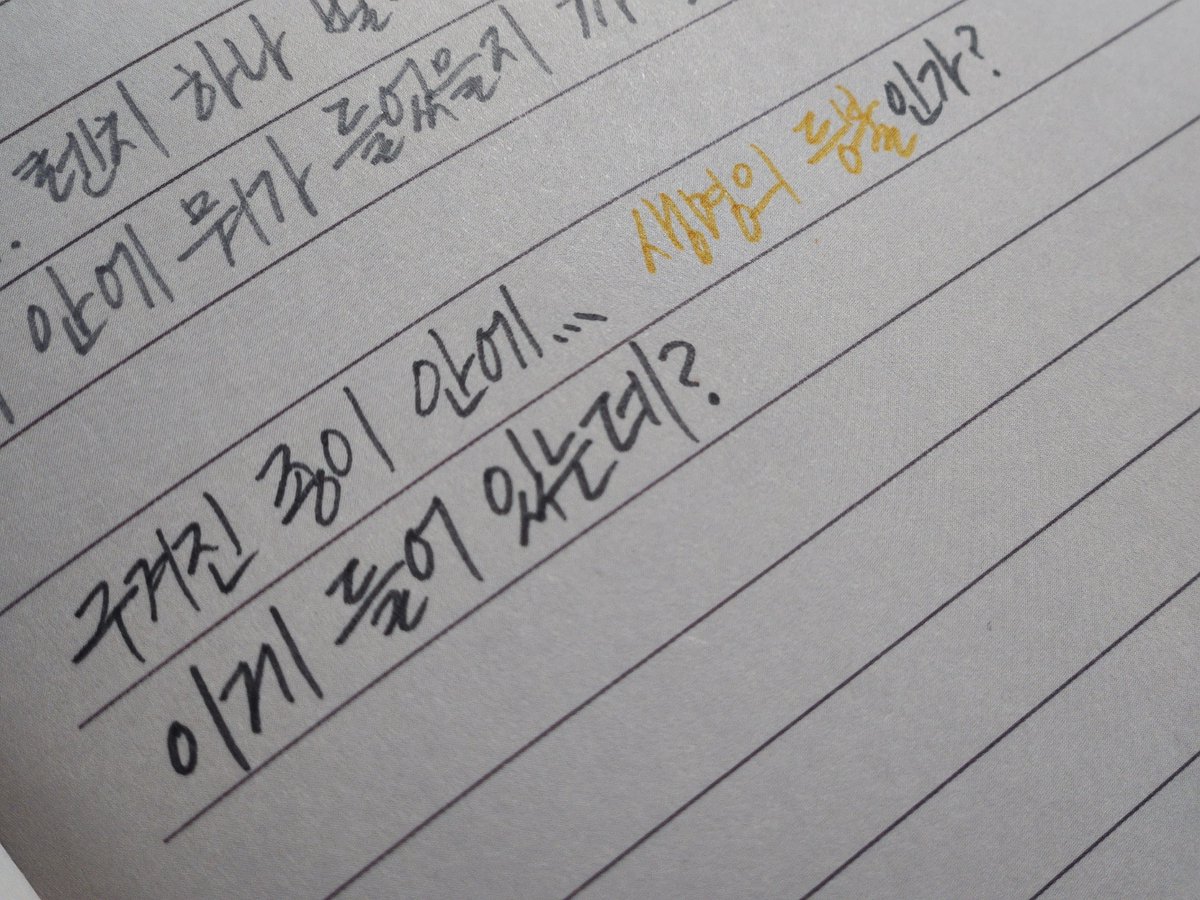 편지 하나
안에 뭐가 들었을지
구겨진 종이 안에... 생명의 등불인가?
이게 들어 있는데?